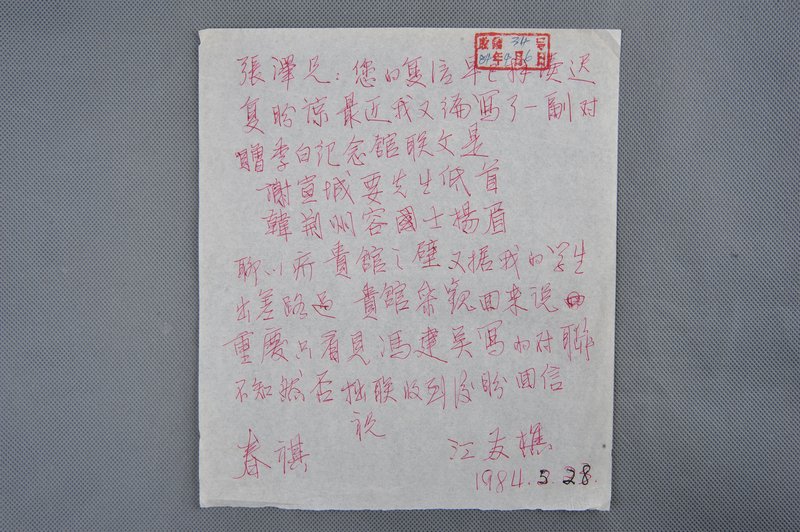 收 34 号
84年9月6日
張澤兄：您的复信早已拜读迟
复盼谅最近我又编写了一副对
赠李白记念館联文是
謝宣城要先生低首
韓荊州容國士揚眉
聊以疥貴館之壁又据我的学生
出差路過 貴館参观回来说
重慶只看見馮建吴写的对聯
不知然否拙联收到後盼回信
祝
春祺 江友樵
1984.5.28.